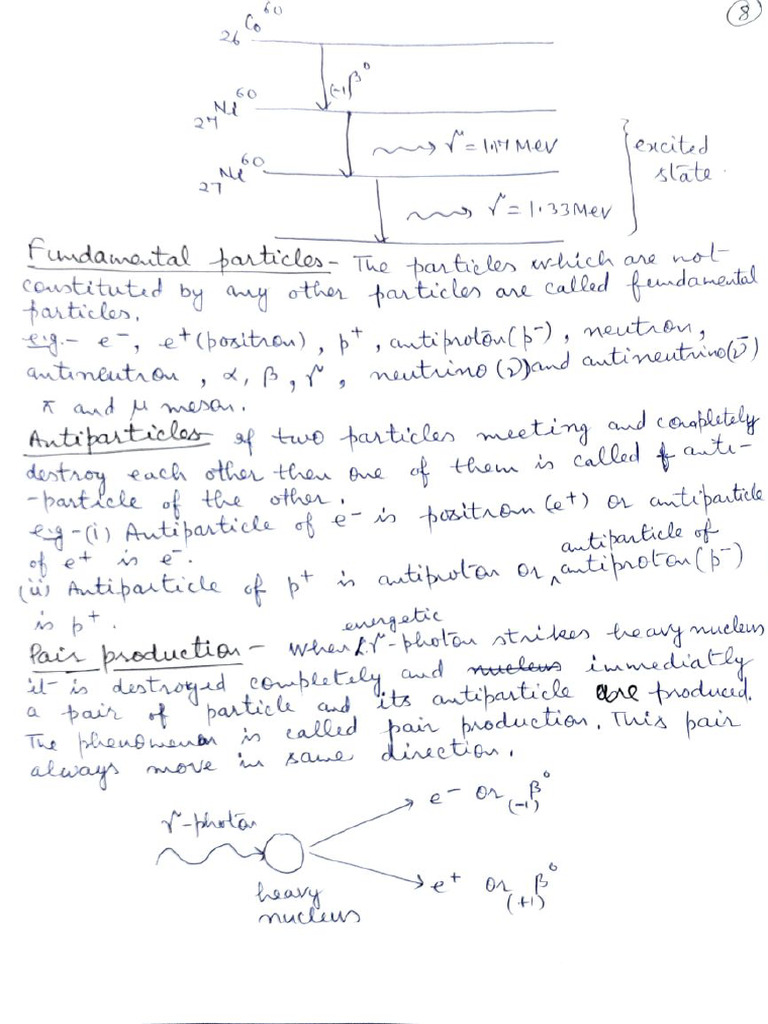 8
26Co60
(-1)β0
27Ni60
γ = 1.17 MeV
excited
27Ni60
state.
γ = 1.33 MeV
Fundamental particles - The particles which are not
constituted by any other particles are called fundamental
particles.
e.g.- e-, e+ (positron), p+, antiproton (p-), neutron,
antineutron, α, β, γ, neutrino (ν) and antineutrino (ν̄)
π and μ meson.
Antiparticles If two particles meeting and completely
destroy each other then one of them is called anti-
-particle of the other.
e.g-(i) Antiparticle of e- is positron (e+) or antiparticle
of e+ is e-.
antiparticle of
(ii) Antiparticle of p+ is antiproton or antiproton (p-)
is p+.
energetic
Pair production - When γ-photon strikes heavy nucleus
it is destroyed completely and nucleus immediatly
a pair of particle and its antiparticle are produced.
The phenomenon is called pair production. This pair
always move in same direction.
e- or (-1)β0
γ-photon
e+ or (+1)β0
heavy
nucleus